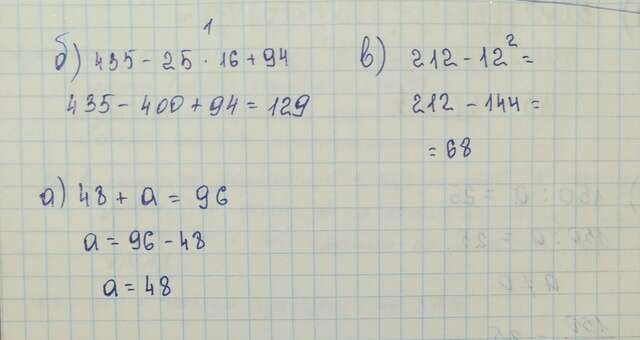 1
б) 435 - 25 · 16 + 94
435 - 400 + 94 = 129
в) 212 - 12² =
212 - 144 =
= 68
а) 48 + a = 96
a = 96 - 48
a = 48